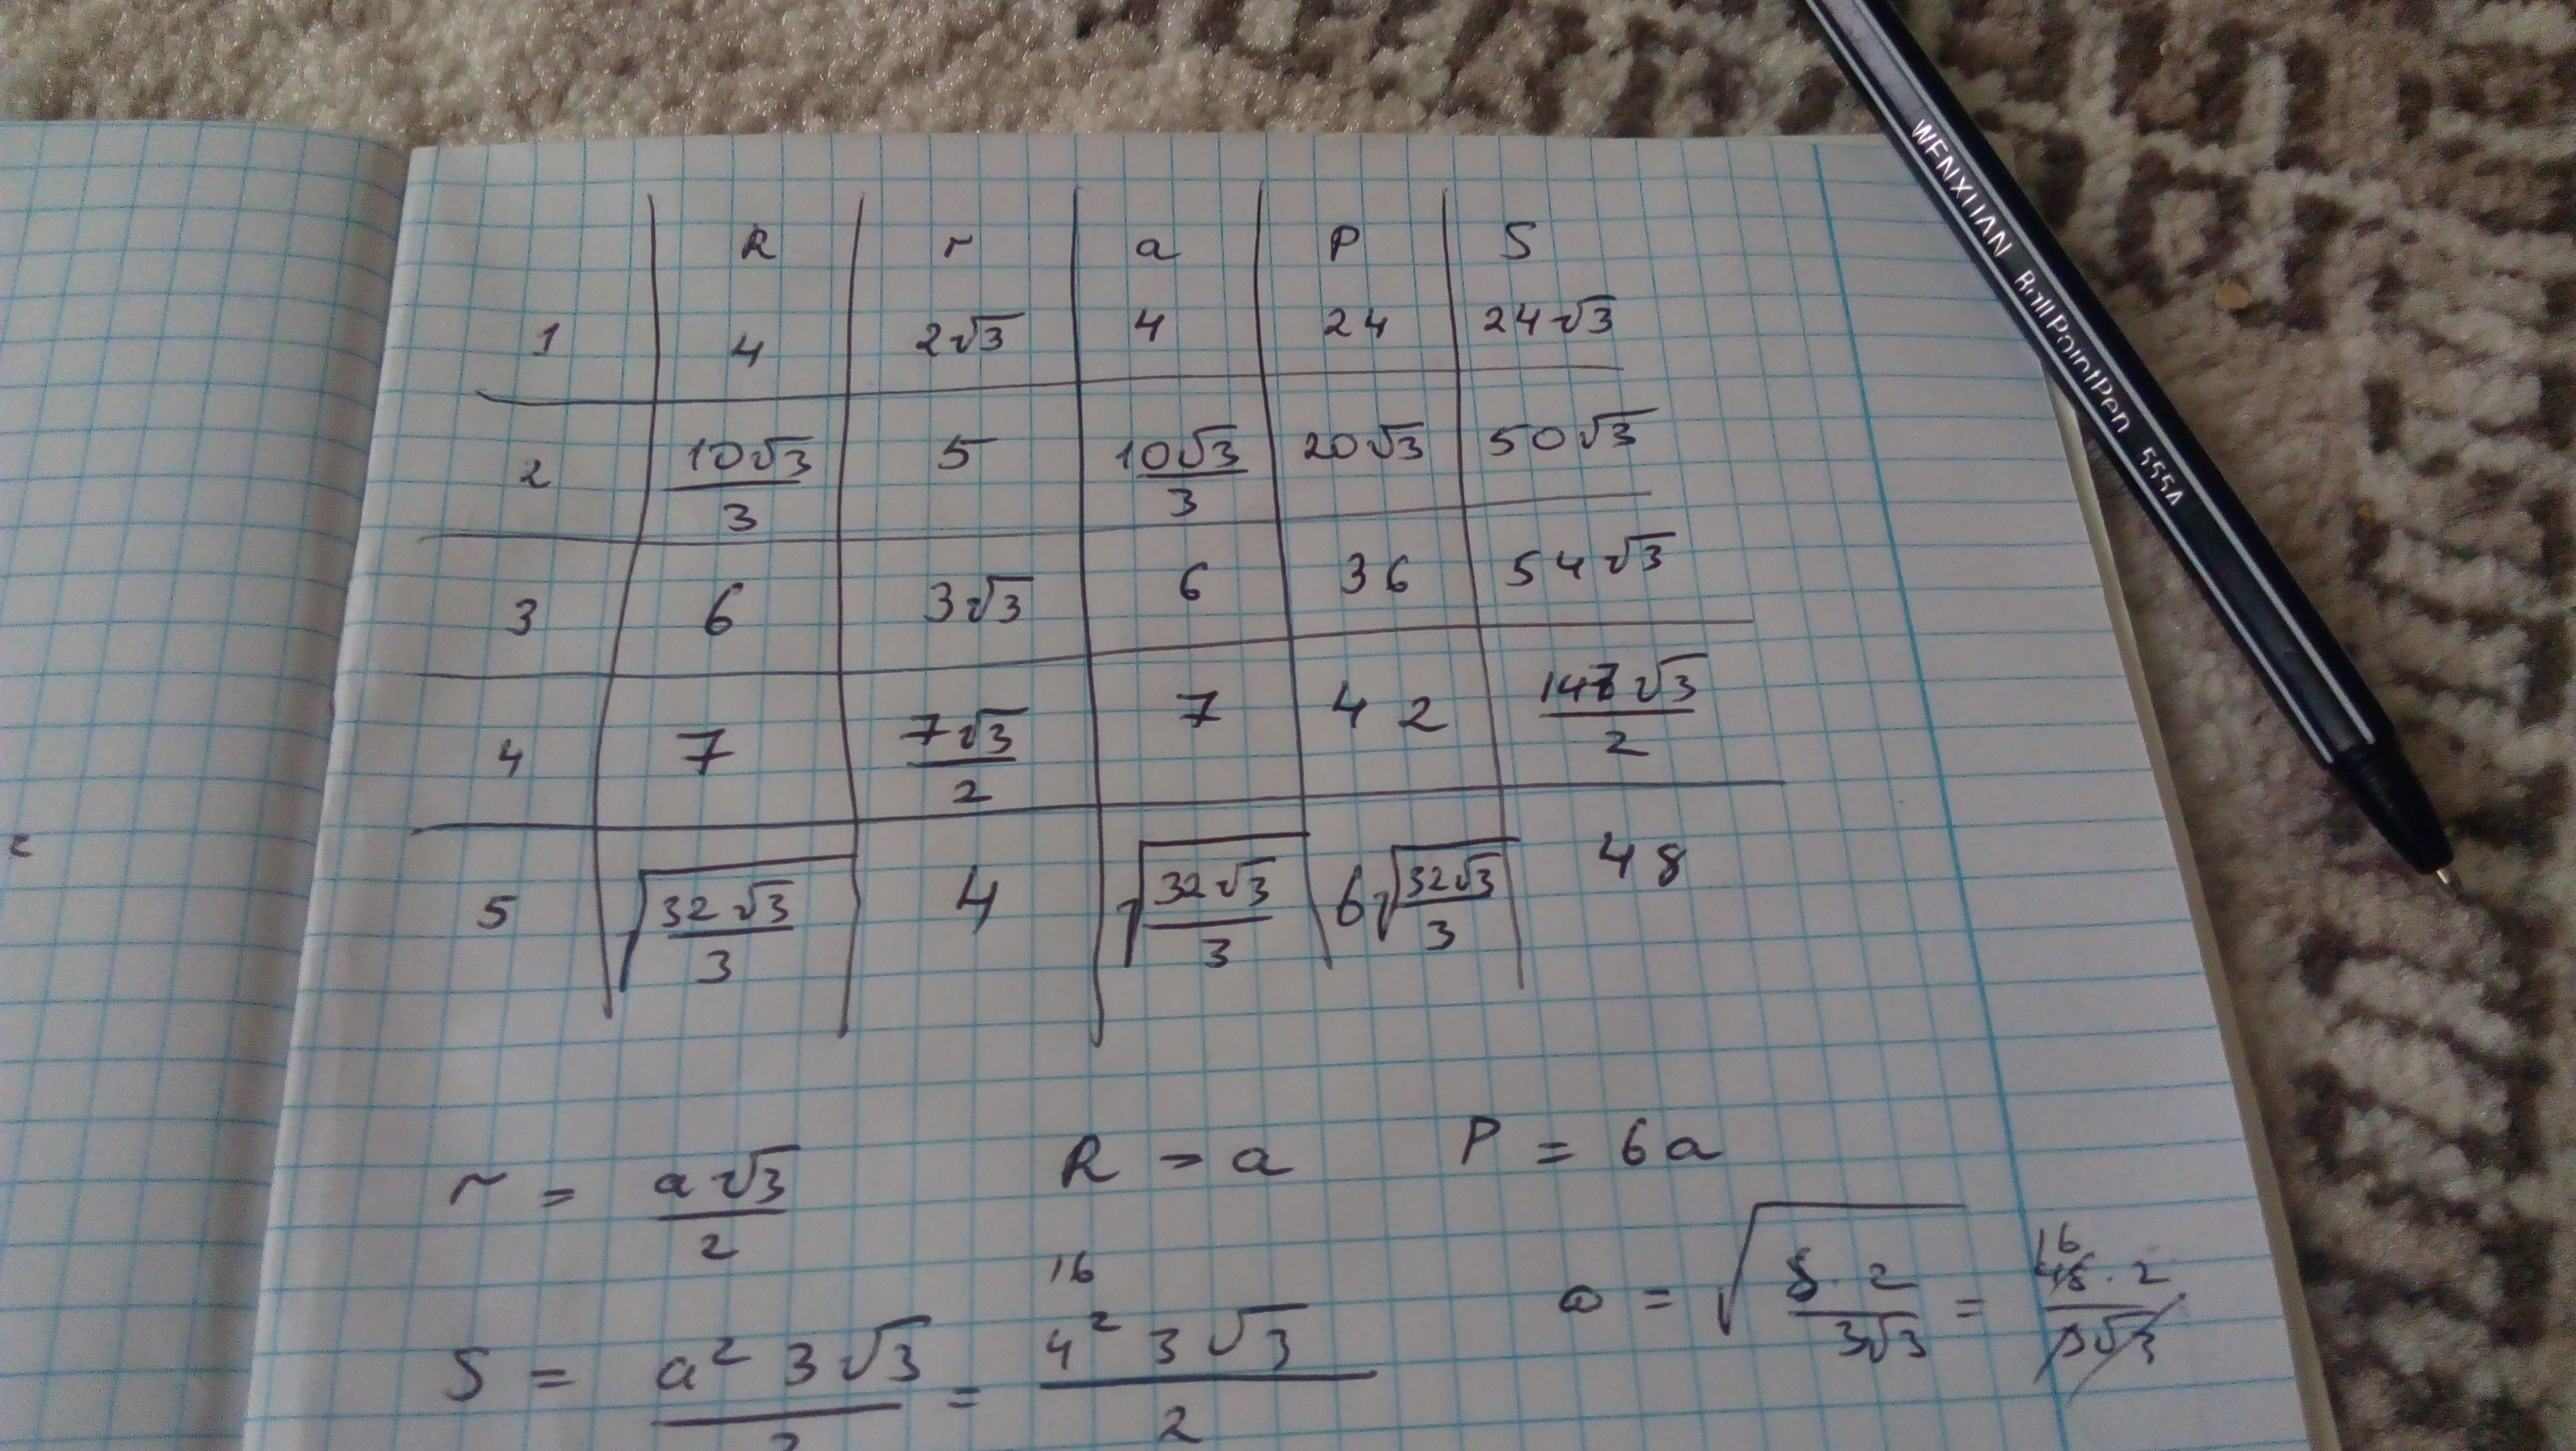 R r a P S
1 4 2√3 4 24 24√3
2 10√3/3 5 10√3/3 20√3 50√3
3 6 3√3 6 36 54√3
4 7 7√3/2 7 42 147√3/2
5 √(32√3/3) 4 √(32√3/3) 6√(32√3/3) 48
r = a√3/2 R = a P = 6a
S = a² 3√3/2 = 16 4² 3√3/2
a = √(S·2/3√3) = 16 48·2/3√3
WENXUAN BallPointPen 555A